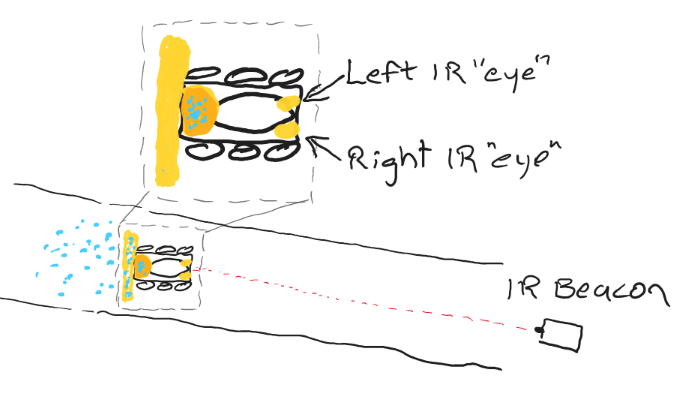 Left IR "eye"
Right IR "eye"
IR Beacon